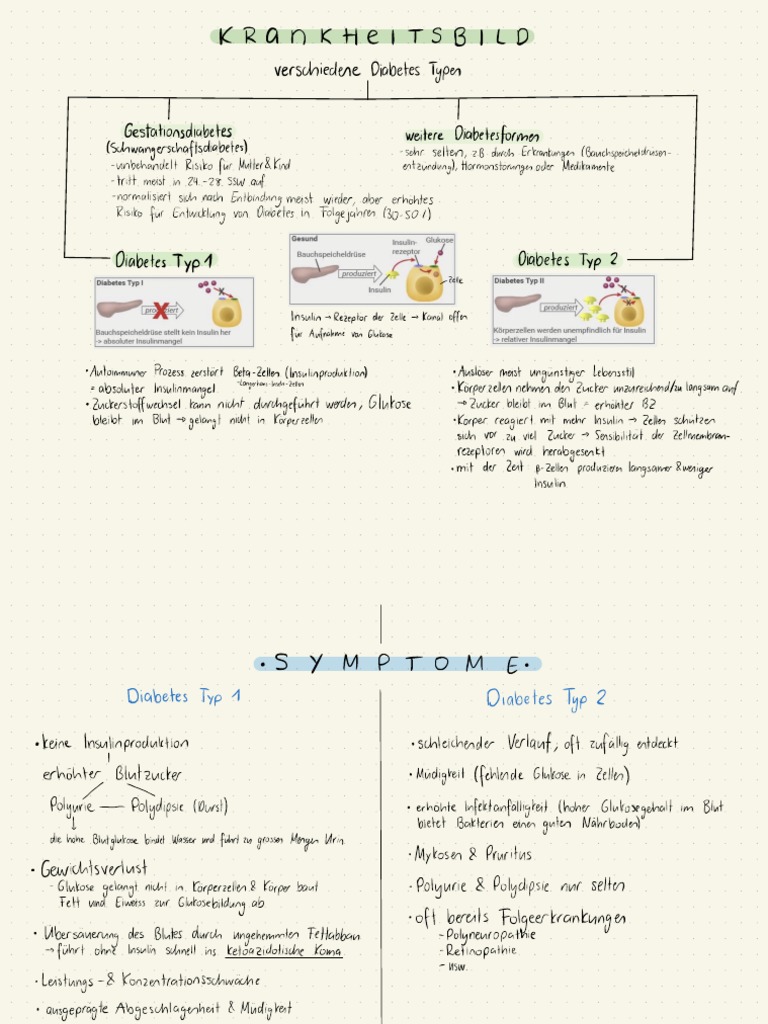 KRANKHEITSBILD
verschiedene Diabetes Typen
Gestationsdiabetes
(Schwangerschaftsdiabetes)
-unbehandelt Risiko für Mutter & Kind
-tritt meist in 24.-28. SSW auf
-normalisiert sich nach Entbindung meist wieder, aber erhöhtes
Risiko für Entwicklung von Diabetes in Folgejahren (30-50%)
weitere Diabetesformen
-sehr selten, z.B. durch Erkrankungen (Bauchspeicheldrüsen-
entzündung), Hormonstörungen oder Medikamente
Diabetes Typ 1
Diabetes Typ I
produziert
Bauchspeicheldrüse stellt kein Insulin her
→ absoluter Insulinmangel
Gesund
Bauchspeicheldrüse
produziert
Insulin
Insulin-
rezeptor
Glukose
Zelle
Insulin → Rezeptor der Zelle → Kanal offen
für Aufnahme von Glukose
Diabetes Typ 2
Diabetes Typ II
produziert
Körperzellen werden unempfindlich für Insulin
→ relativer Insulinmangel
• Autoimmuner Prozess zerstört Beta-Zellen (Insulinproduktion)
= absoluter Insulinmangel
• Zuckerstoffwechsel kann nicht durchgeführt werden, Glukose
bleibt im Blut → gelangt nicht in Körperzellen
• Auslöser meist ungünstiger Lebensstil
• Körperzellen nehmen den Zucker unzureichend/zu langsam auf
→ Zucker bleibt im Blut = erhöhter BZ
• Körper reagiert mit mehr Insulin → Zellen schützen
sich vor zu viel Zucker → Sensibilität der Zellmembran-
rezeptoren wird herabgesenkt
• mit der Zeit β-Zellen produziern langsamer & weniger
Insulin
• SYMPTOME •
Diabetes Typ 1
• keine Insulinproduktion
erhöhter Blutzucker
Polyurie — Polydipsie (Durst)
die hohe Blutglukose bindet Wasser und führt zu grossen Mengen Urin.
• Gewichtsverlust
- Glukose gelangt nicht in Körperzellen & Körper baut
Fett und Eiweiss zur Glukosebildung ab
• Übersäuerung des Blutes durch ungehemmten Fettabbau
→ führt ohne Insulin schnell ins ketoazidotische Koma
• Leistungs- & Konzentrationsschwäche
• ausgeprägte Abgeschlagenheit & Müdigkeit
Diabetes Typ 2
• schleichender Verlauf, oft zufällig entdeckt
• Müdigkeit (fehlende Glukose in Zellen)
• erhöhte Infektanfälligkeit (hoher Glukosegehalt im Blut
bietet Bakterien einen guten Nährboden)
• Mykosen & Pruritus
• Polyurie & Polydipsie nur selten
• oft bereits Folgeerkrankungen
- Polyneuropathie
- Retinopathie
- usw.